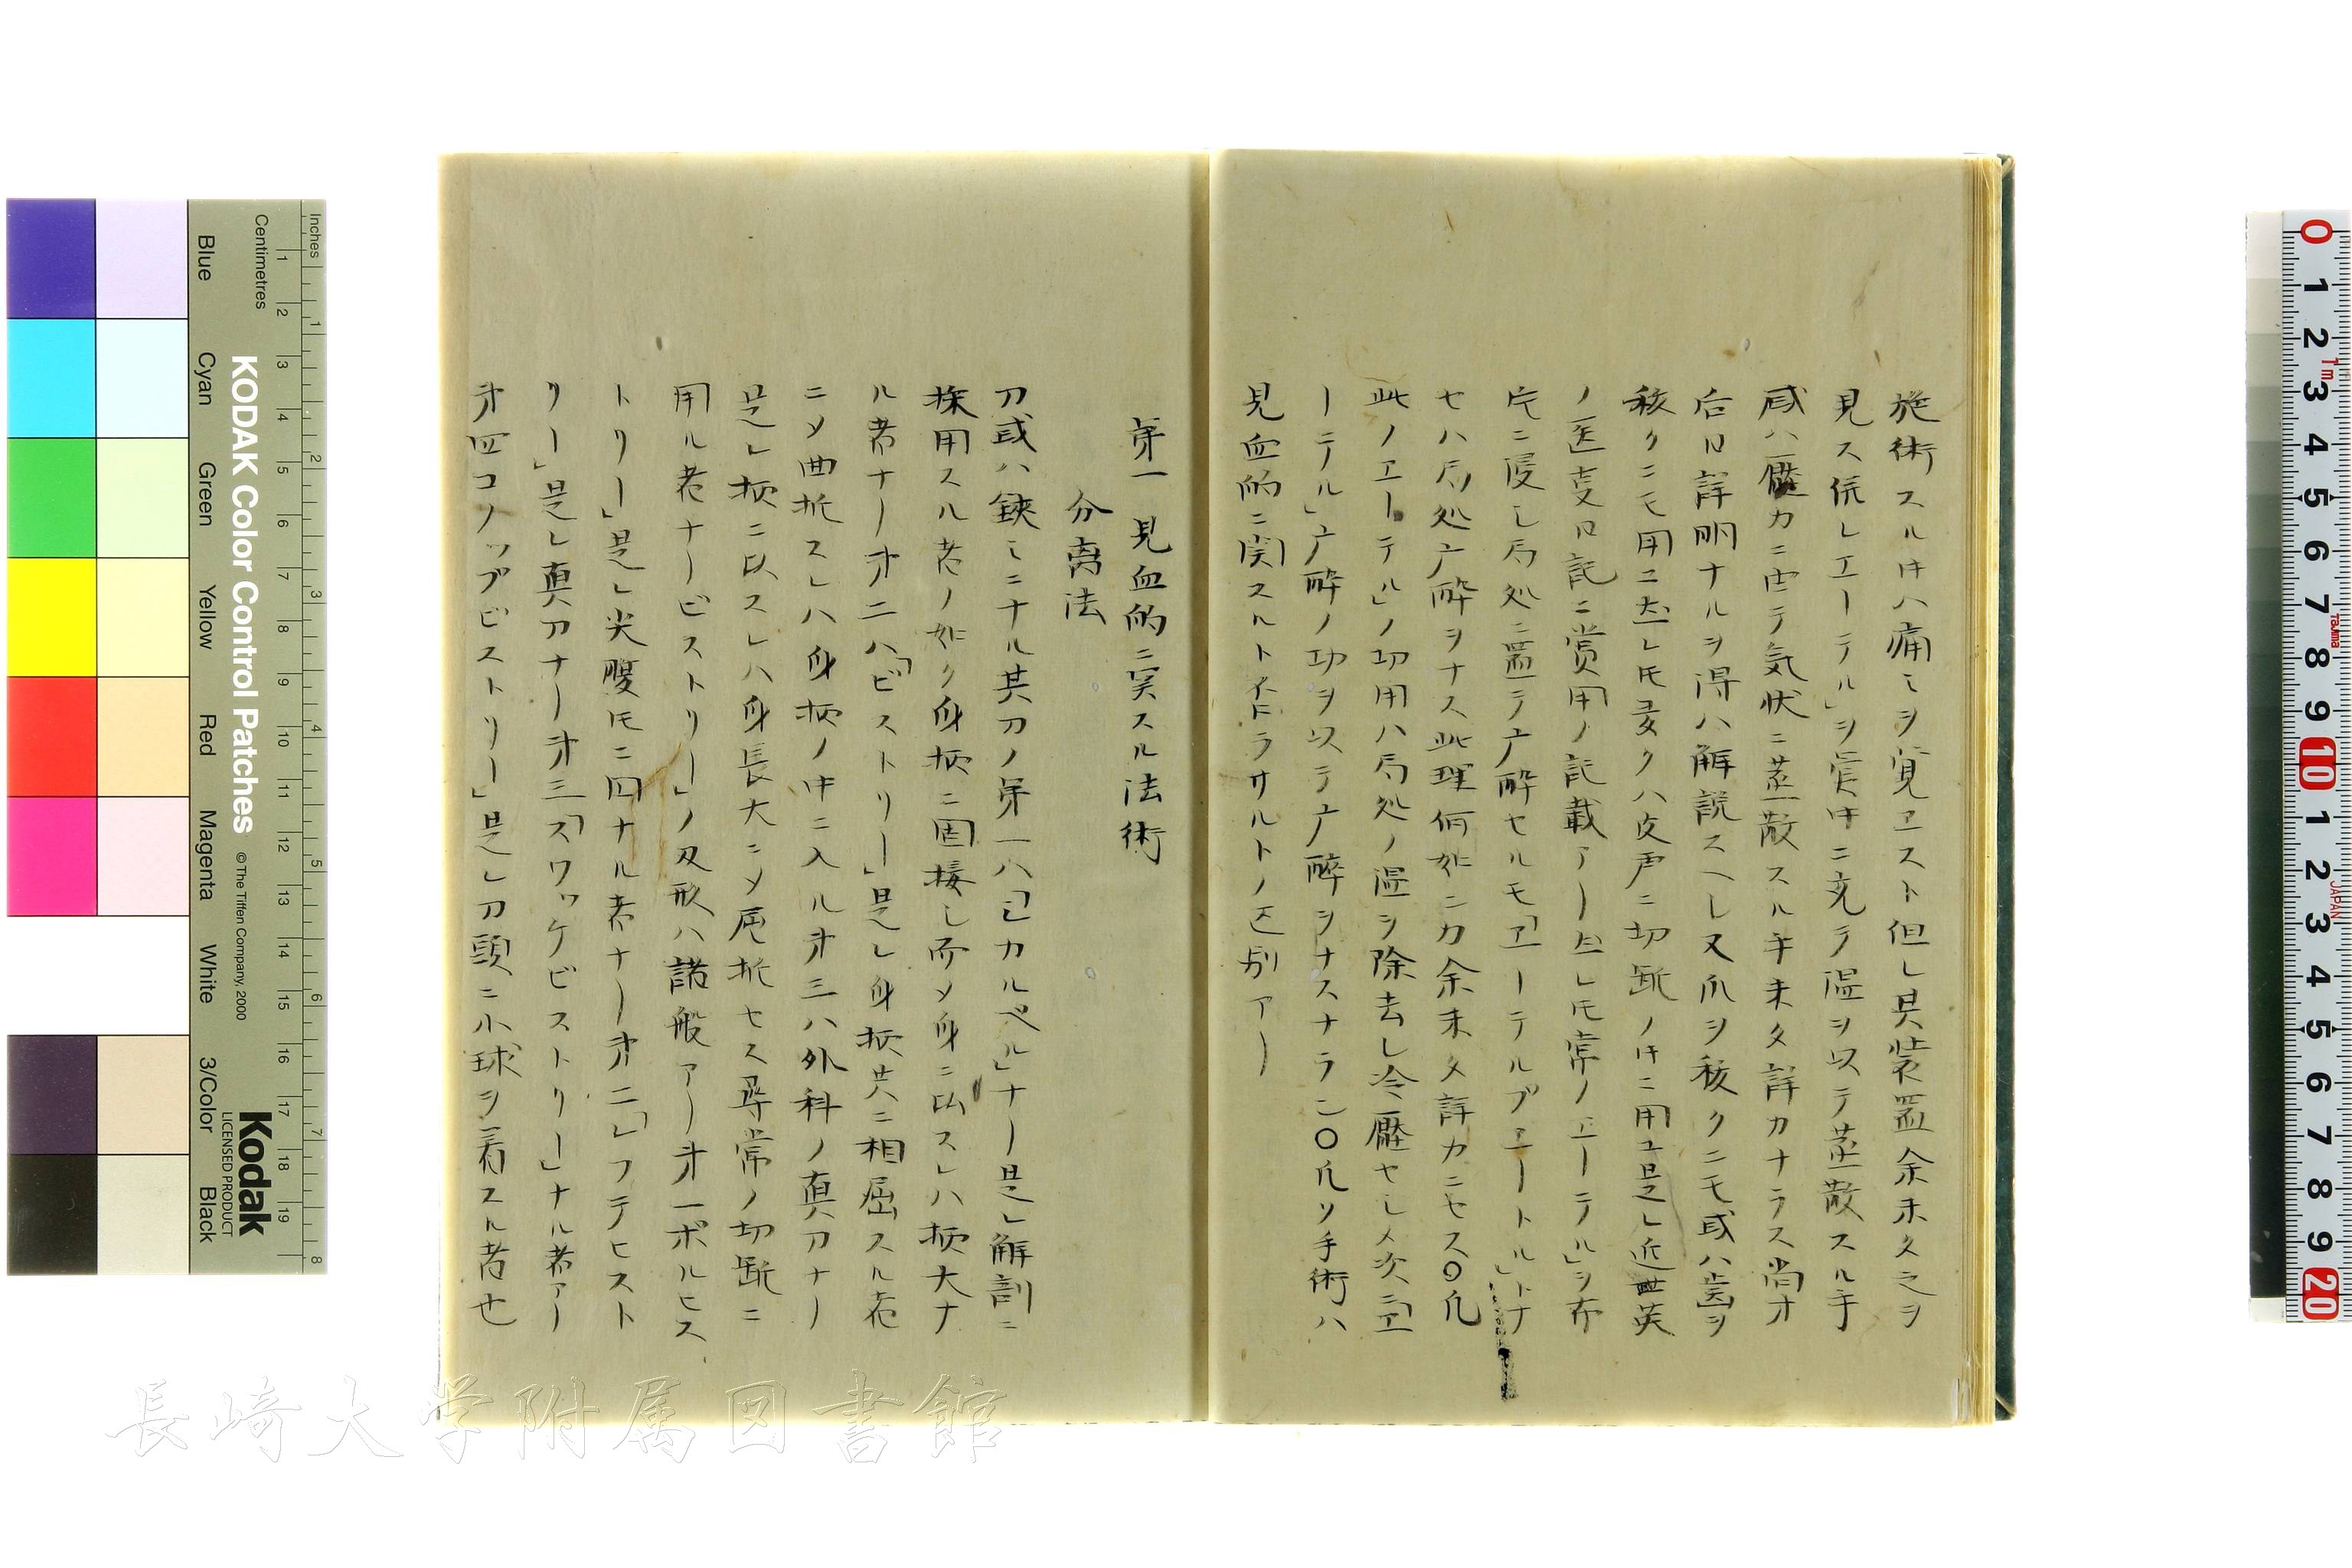 施術スルキハ痛ミヲ覚エスト但し其装置余未タ之ヲ
見ス併レエーテル」ヲ管中ニ充テ温ヲ以テ蒸散スル乎
或ハ壓力ニ由テ気状ニ蒸散スル乎未タ詳カナラス尚才
后日詳明ナルヲ得ハ解説スヘし又爪ヲ抜クニモ或ハ歯ヲ
抜クニモ用ニ立レ𪜈多クハ皮膚ニ切断ノキニ用ユ是レ近世英
ノ医事日記ニ賞用ノ記載アー
片ニ浸し局処ニ置テ广酔セルモ「エーテルブエートル」トナ
セハ局処广酔ヲナス此理何如ニカ余未タ詳カニセス〇凡
此ノエーテル」ノ功用ハ局処ノ温ヲ除去し冷壓セし〆次ニ「エ
ーテル」广酔ノ功ヲ以テ广酔ヲナスナラン〇凡ソ手術ハ
見血的ニ関スルト不ラサルトノ区別アー
第一見血的ニ属スル法術
分离法
刀或ハ鋏ミニナル其刀ノ第一ハ「シカルペル」ナー是レ解剖ニ
採用スル者ノ如ク身柄ニ固接し而〆身ニ比スレハ柄大ナ
ル者ナー才二ハ「ビストリー」是レ身柄共ニ相屈スル者
ニ〆曲折スレハ身柄ノ中ニ入ル才三ハ外科ノ真刀ナー
是レ柄ニ比スレハ身長大ニ〆屈折セス尋常ノ切断ニ
用ル者ナービストリー」ノ刃形ハ諸般アー才一ボルヒス
トリー」是レ尖腹𪜈ニ凹ナル者ナー才二「レフテヒスト
リー」是レ真刀ナー才三「スワッケビストリー」ナル者アー
才四コノップビストリー」是レ刀頭ニ小球ヲ着スル者也
KODAK Color Control Patches
©The Tiffen Company, 2000
Kodak
LICENSED PRODUCT
Inches
Centimetres
Blue
Cyan
Green
Yellow
Red
Magenta
White
3/Color
Black
長崎大学附属図書館